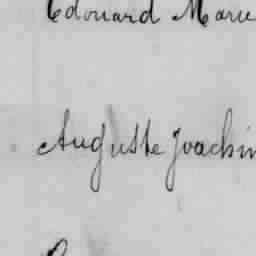 Edouard Marie
Auguste Joachim